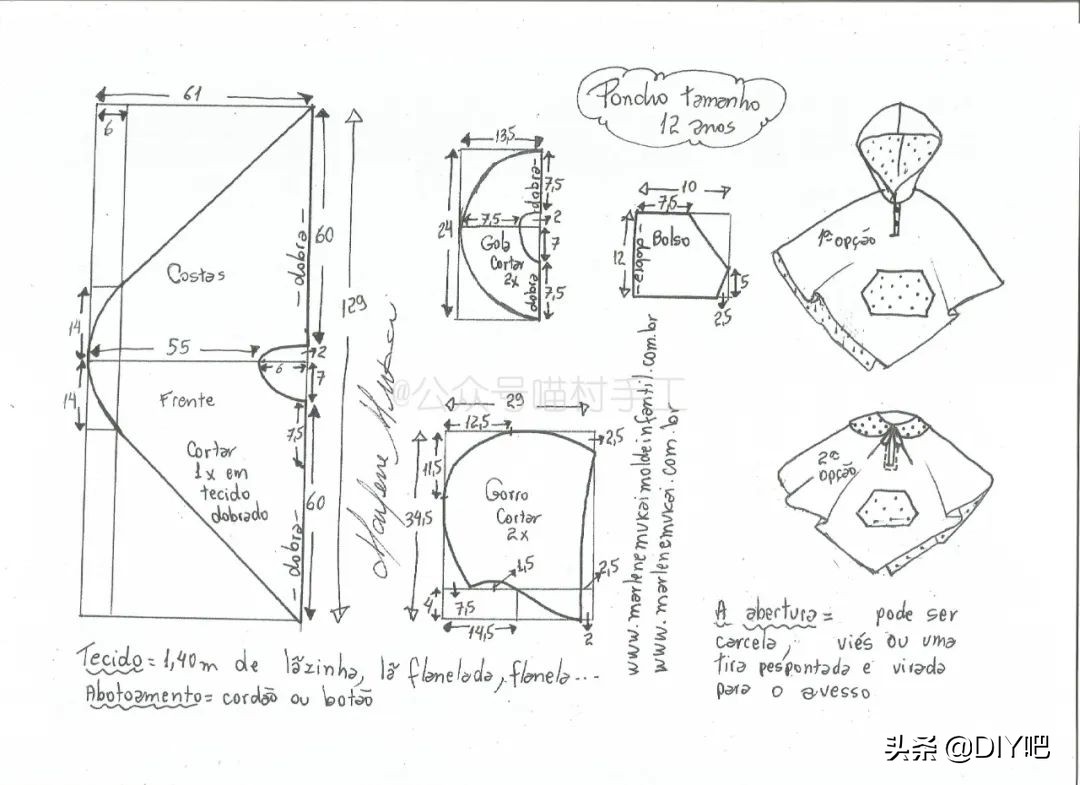 Poncho tamanho
12 anos
61
6
60
- dobra -
Costas
129
14
55
2
6
7
14
Frente
7,5
Cortar
1x em
tecido
dobrado
60
- dobra -
13,5
7,5
dobra
24
7,5
2
Gola
Cortar
2x
7
dobra
7,5
10
7,5
Bolso
12
- dobra -
5
2,5
1ª opção
@公众号喵村手工
Marlene Mukai
29
12,5
2,5
11,5
34,5
Gorro
Cortar
2x
1,5
2,5
4
7,5
14,5
2
www.marlenemukaimoldeinfantil.com.br
www.marlenemukai.com.br
2ª
opção
A abertura = pode ser
carcela, viés ou uma
tira pespontada e virada
para o avesso
Tecido = 1,40m de lãzinha, lã flanelada, flanela...
Abotoamento = cordão ou botão
头条 @DIY吧